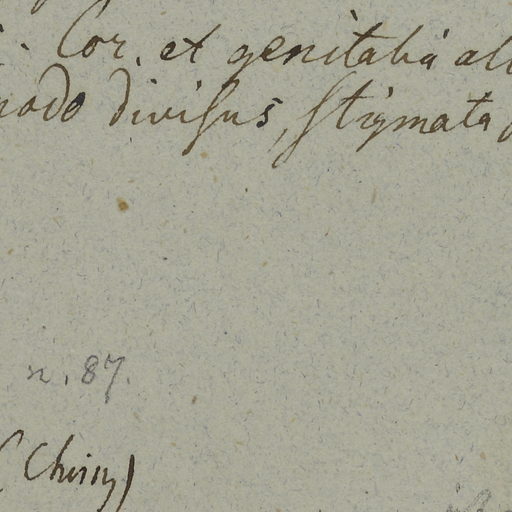 . Cor. et genitalia al
modo divisus, stigmata
n. 87.